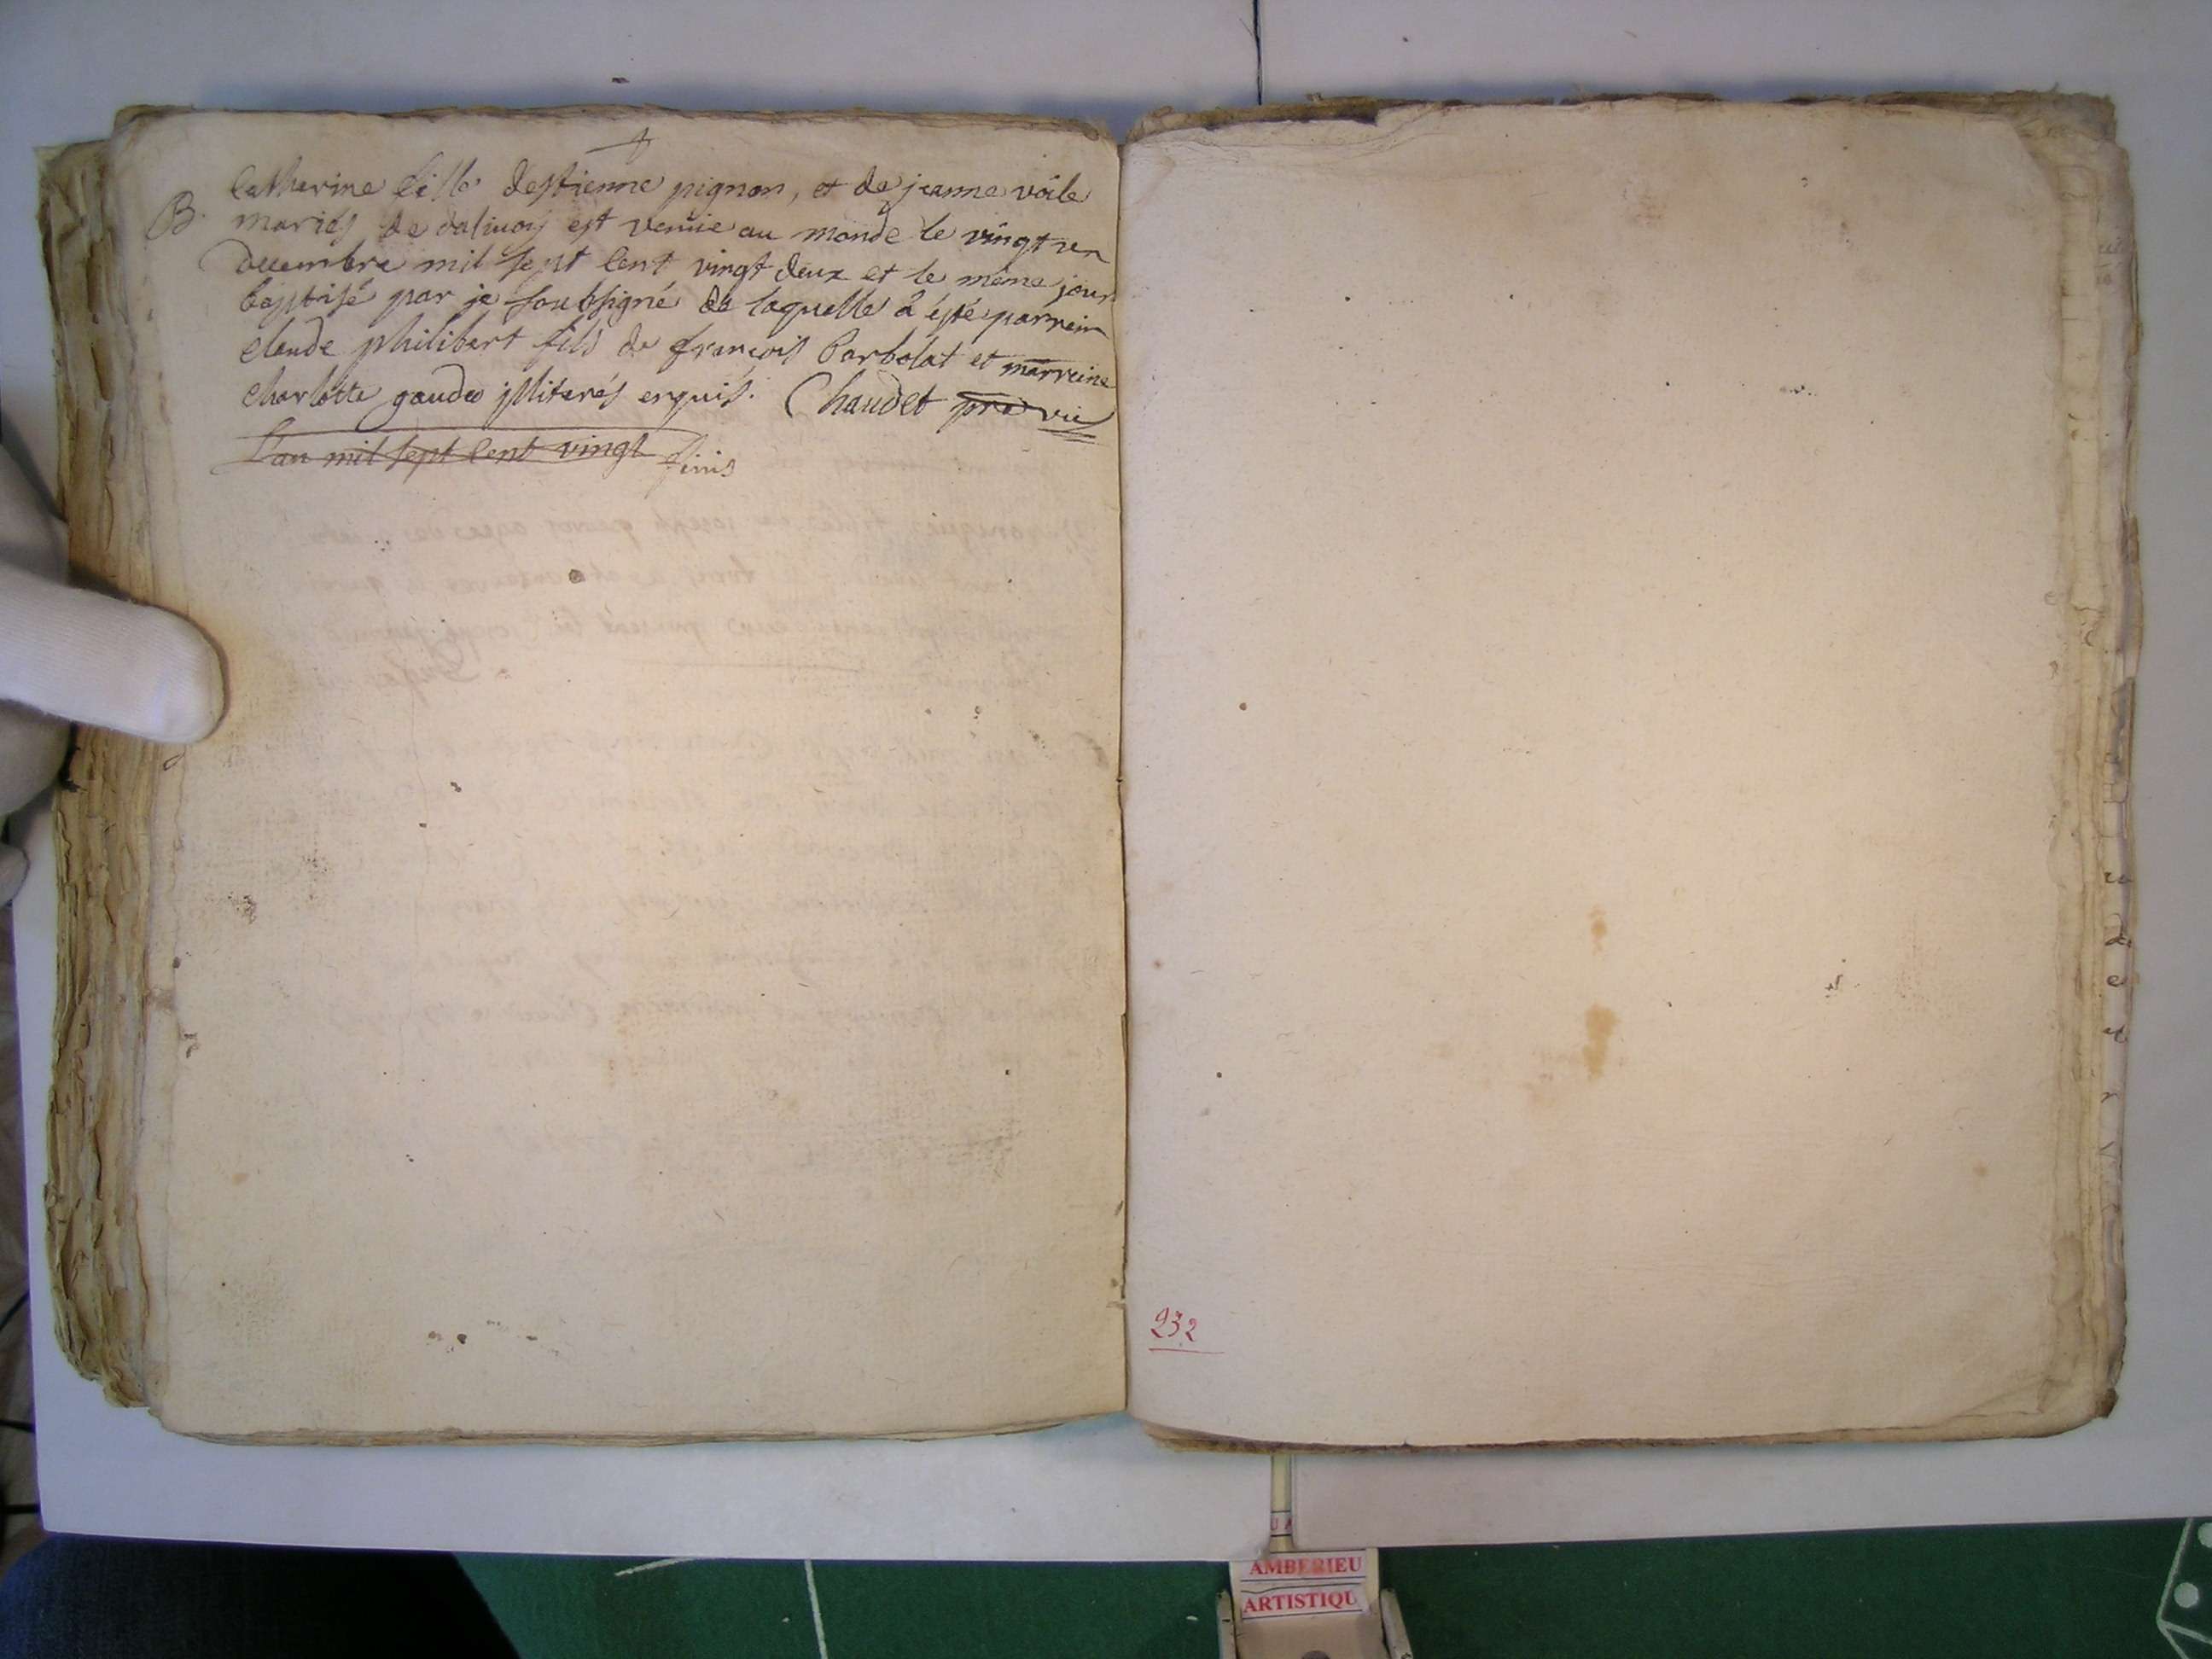 B.
Catherine fille destienne pignon, et de jeanne voile
mariés de dalivoy est venüe au monde le vingt un
decembre mil sept cent vingt deux et le même jour
baptisé par je soubsigné de laquelle â esté parrein
claude philibert fils de françois Barbolat et marreine
charlotte gaudes illiterés enquis. Chaudet pre vic
L'an mil sept cent vingt finis
232
AMBERIEU
ARTISTIQU